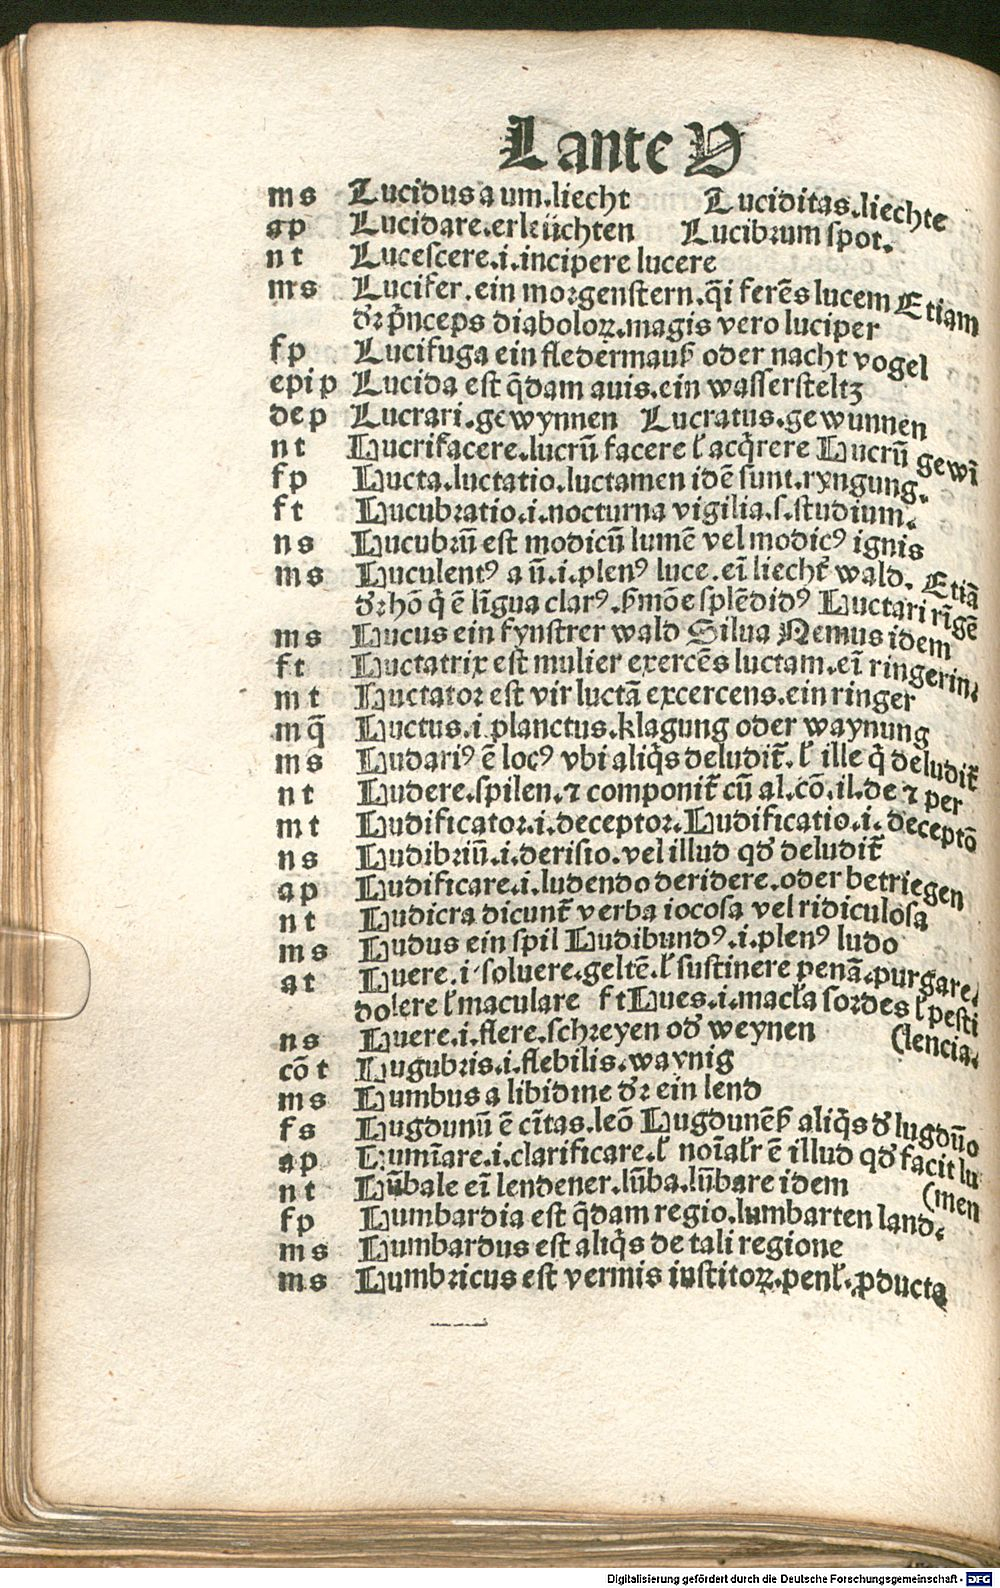 L ante V
ms Lucidus a um.liecht Luciditas.liechte
ap Lucidare.erleüchten Lucibrum spot.
nt Lucescere.i.incipere lucere
ms Lucifer.ein morgenstern.q̄i ferēs lucem Etiam
dr̄ p̄nceps diaboloꝝ.magis vero luciper
fp Lucifuga ein fledermauß oder nacht vogel
epi p Lucida est q̄dam auis.ein wassersteltz
dep Lucrari.gewynnen Lucratus.gewunnen
nt Lucrifacere.lucrū facere ł acq̇rere Lucrū gewī
fp Lucta.luctatio.luctamen idē sunt.ryngung.
ft Lucubratio.i.nocturna vigilia.s.studium.
ns Lucubrū est modicū lumē vel modicꝰ ignis
ms Luculentꝰ a ū.i.plenꝰ luce.eī liecht̄ wald. Etiā
dr̄ hō q̇ ē līgua clarꝰ.ẜmōe splēdidꝰ Luctari rīgē
ms Lucus ein fynstrer wald Silua Nemus idem
ft Luctatrix est mulier exercēs luctam.eī ringerin.
mt Luctator est vir luctā excercens.ein ringer
mq̄ Luctus.i planctus.klagung oder waynung
ms Ludariꝰ ē locꝰ vbi aliq̇s deludit̄.ł ille q̇ deludit̄
nt Ludere.spilen.⁊ componit̄ cū al.cō.il.de ⁊ per
mt Ludificator.i.deceptor.Ludificatio.i.deceptō
ns Ludibriū.i.derisio.vel illud qđ deludit̄
ap Ludificare.i.ludendo deridere.oder betriegen
nt Ludicra dicunt̄ verba iocosa vel ridiculosa
ms Ludus ein spil Ludibundꝰ.i.plenꝰ ludo
at Luere.i soluere.geltē.ł sustinere penā.purgare.
dolere ł maculare ft Lues.i.macła sordes ł pesti
ns Luere.i.flere.schreyen ođ weynen (lencia.
cō t Lugubris.i.flebilis.waynig
ms Lumbus a libidine dr̄ ein lend
fs Lugdunū ē cītas.leō Lugdunēß aliq̇s đ lugdūo
ap Lumīare.i.clarificare.ł noīałr ē illud qđ facit lu
nt Lūbale eī lendener.lūba.lūbare idem (men
fp Lumbardia est q̄dam regio.lumbarten land.
ms Lumbardus est aliq̇s de tali regione
ms Lumbricus est vermis institoꝝ.penł.ꝓducta
Digitalisierung gefördert durch die Deutsche Forschungsgemeinschaft - DFG